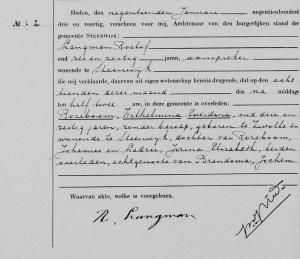 No 2
Heden, den negentienden Januari negentienhonderd
drie en veertig, verscheen voor mij, Ambtenaar van den burgerlijken stand der
gemeente STEENWIJK:
Langman, Roelof
oud zes en zestig jaren, aanspreker
wonende te Steenwijk
die mij verklaarde, daarvan uit eigen wetenschap kennisdragende, dat op den acht
tienden dezer maand des na middags
ten half twee ure, in deze gemeente is overleden:
Rozeboom, Wilhelmina Everdina, oud drie en
zestig jaren, zonder beroep, geboren te Zwolle en
wonende te Steenwijk, dochter van Rozeboom,
Johannes en Ladru, Jorina Elizabeth, beiden
overleden, echtgenoote van Brandsma, Jochem.
Waarvan akte, welke is voorgelezen.
R. Langman